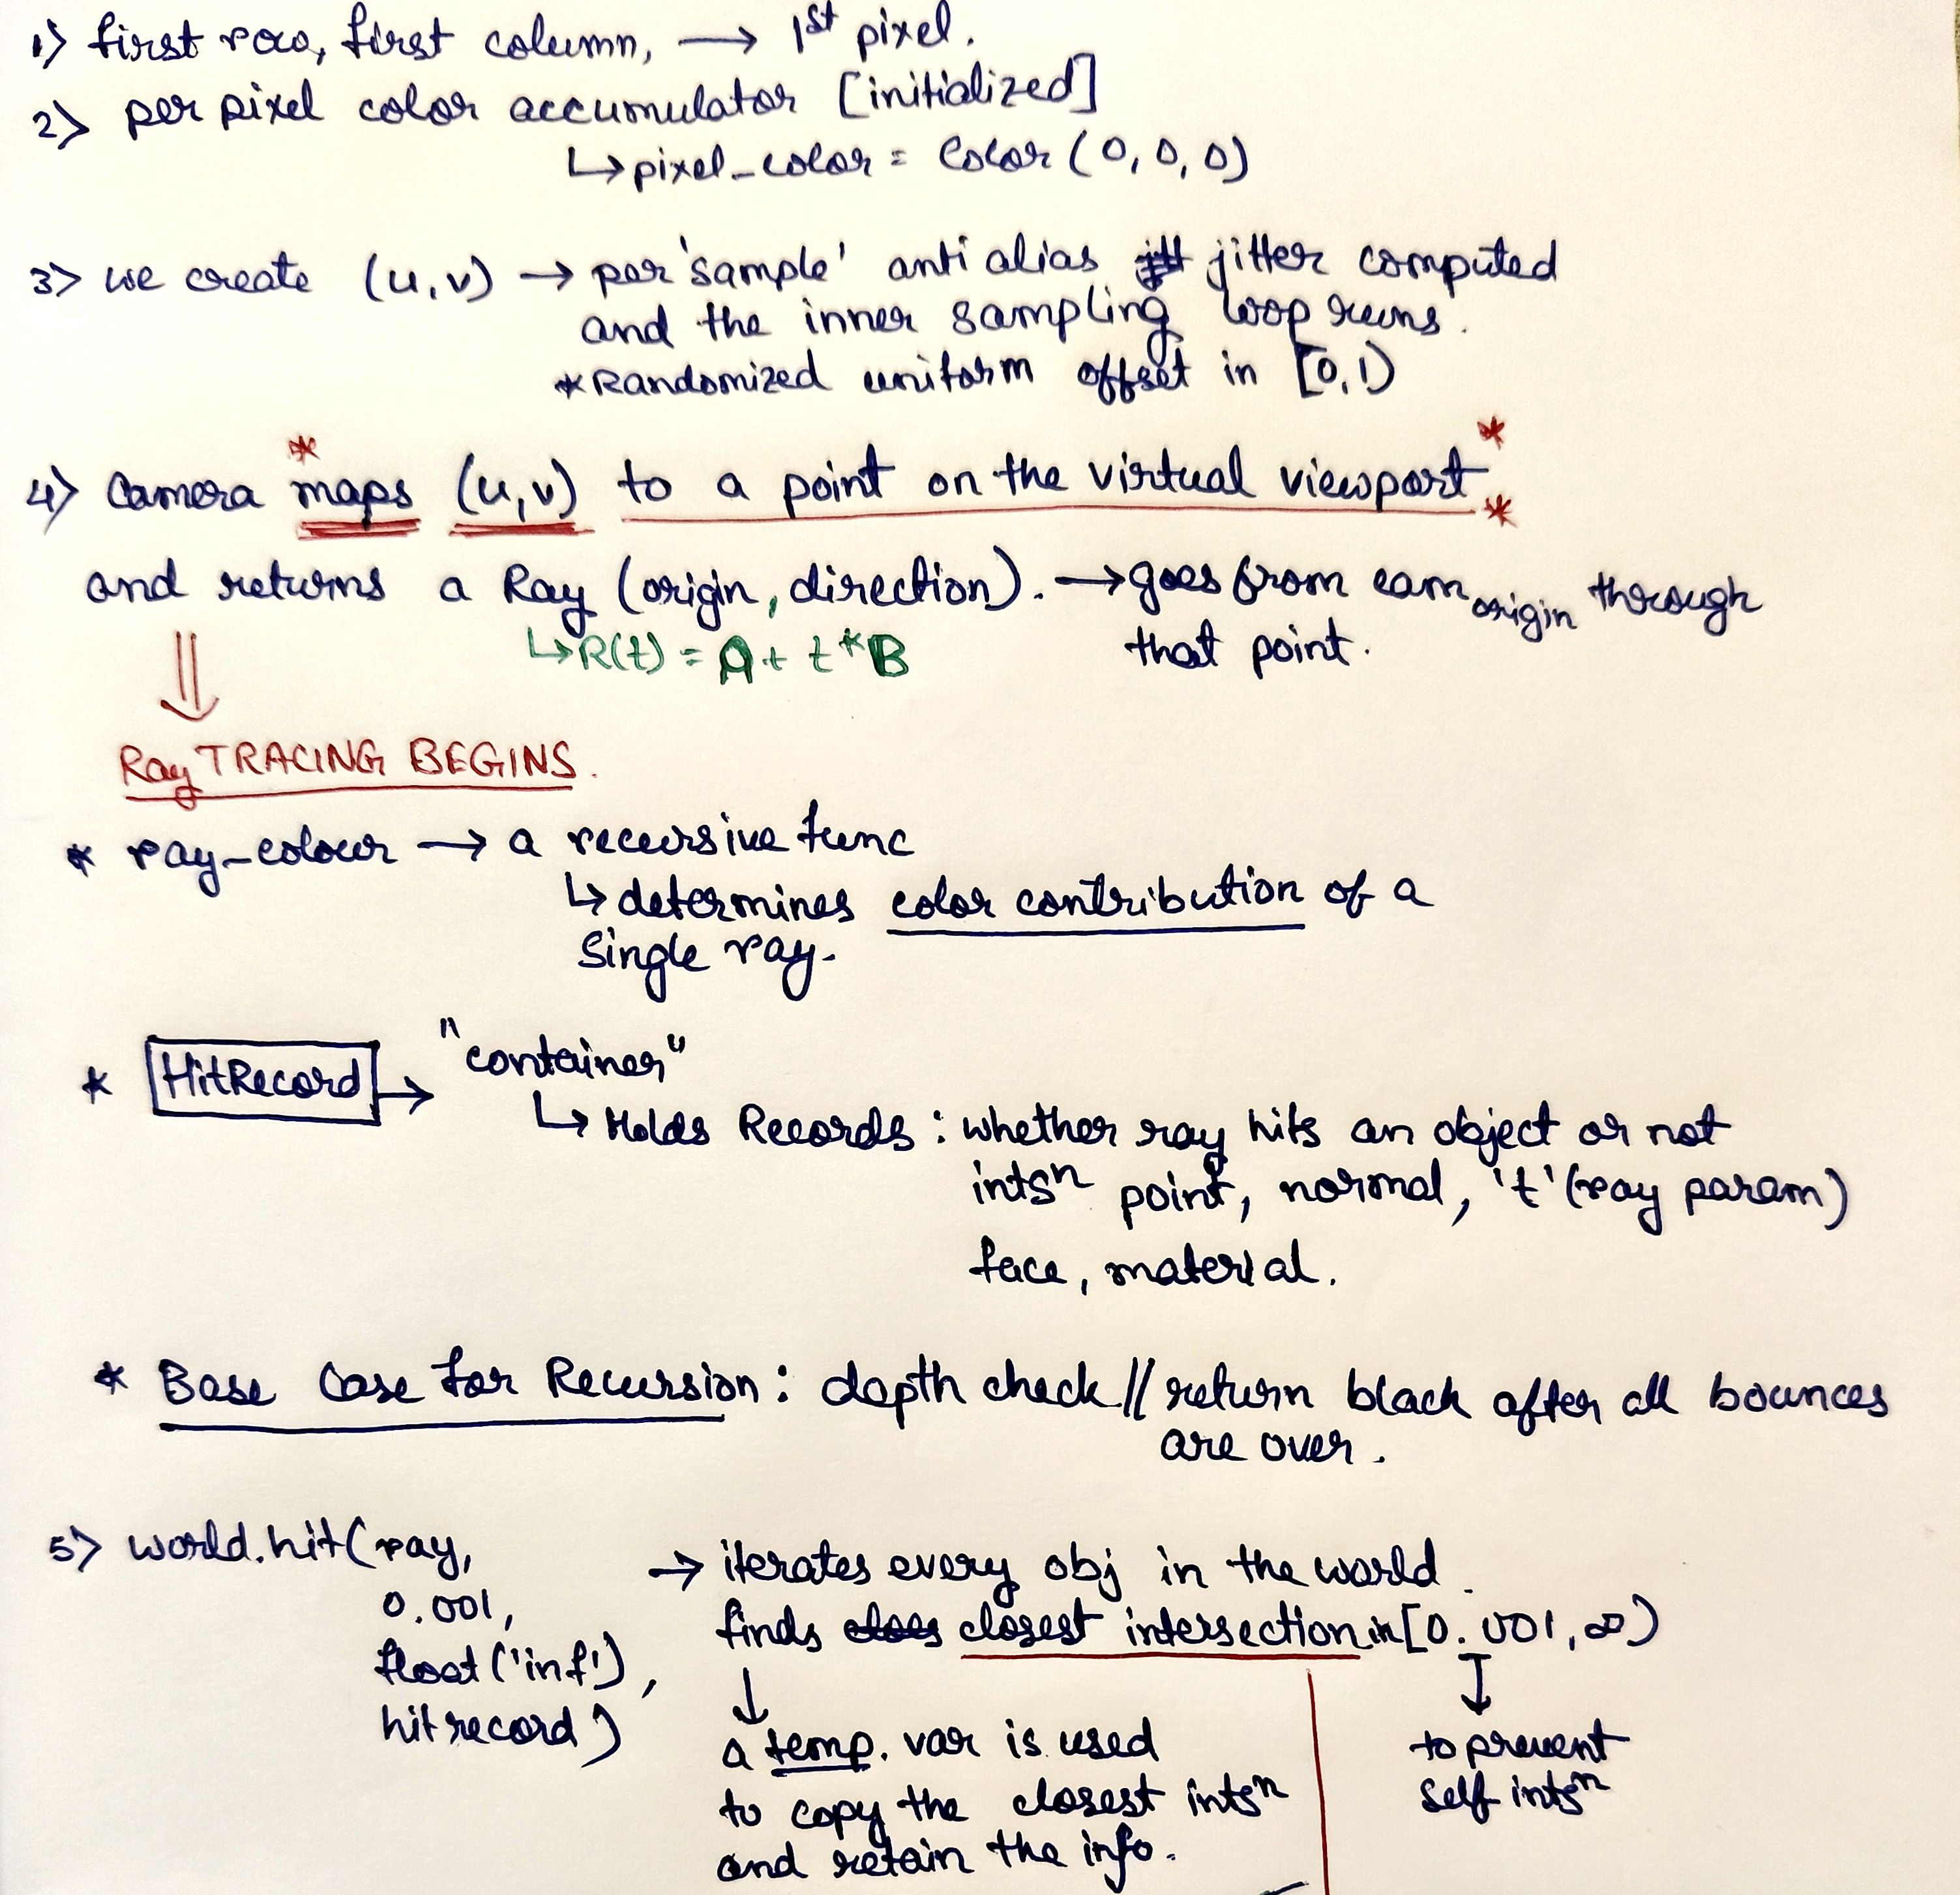 1) first row, first column, → 1st pixel.
2) per pixel color accumulator [initialized]
↳ pixel_color = Color (0, 0, 0)
3) we create (u, v) → per 'sample' anti alias jitter computed
and the inner sampling loop runs.
* Randomized uniform offset in [0, 1)
4) Camera *maps (u, v) to a point on the virtual viewport**
and returns a Ray (origin, direction). → goes from cam origin through
↳ R(t) = A + t * B that point.
⇓
Ray TRACING BEGINS.
* ray_colour → a recursive func
↳ determines color contribution of a
single ray.
* HitRecord → "container"
↳ Holds Records : whether ray hits an object or not
intsn point, normal, 't' (ray param)
face, material.
* Base Case for Recursion : depth check // return black after all bounces
are over.
5) world.hit(ray, → iterates every obj in the world.
0.001, finds closest intersection in [0.001, ∞)
float('inf'), ↓ ↓
hitrecord) a temp. var is used to prevent
to copy the closest intsn self intsn
and retain the info.